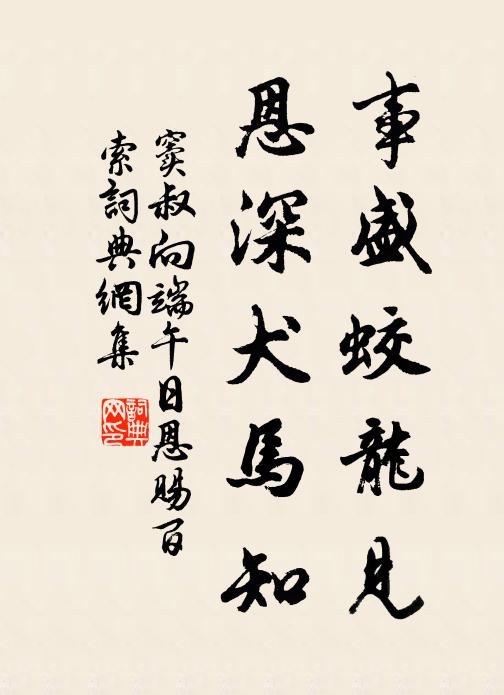 事盛蛟龍見
恩深犬馬知
窦叔向端午日恩賜百
索詞典網集
詞典
网印